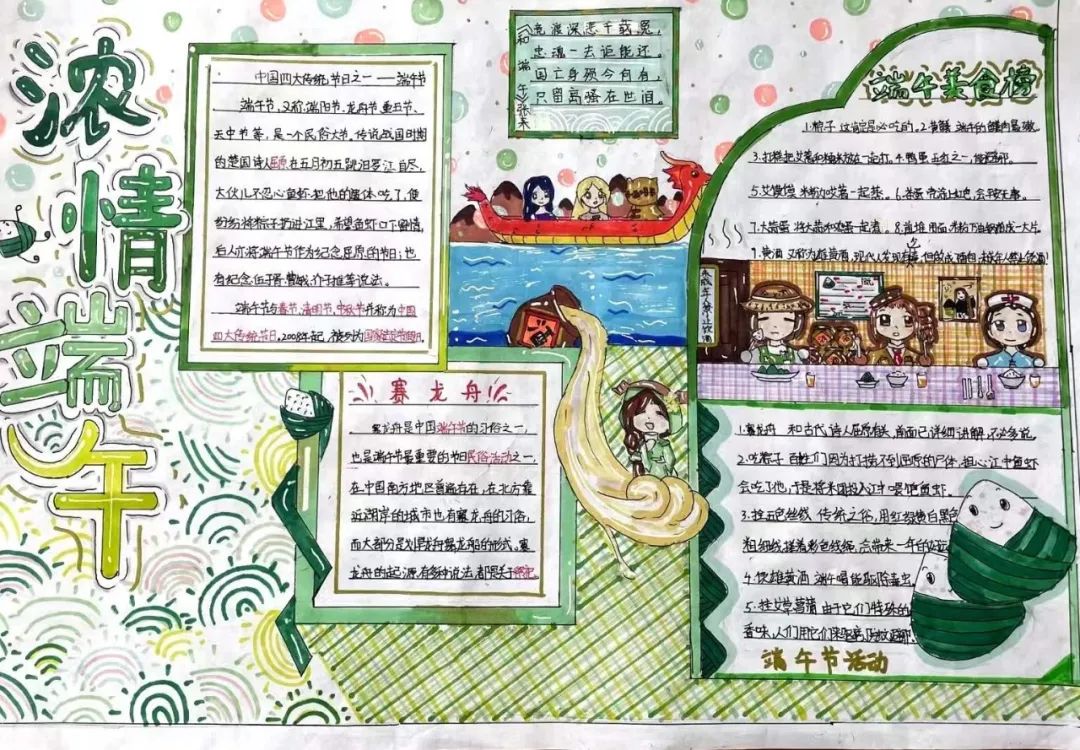 浓情端午
中国四大传统节日之一——端午节
端午节,又称端阳节、龙舟节、重五节、
天中节等,是一个民俗大节,传说战国时期
的楚国诗人屈原在五月初五跳汨罗江自尽,
大伙儿不忍心鱼虾把他的尸体吃了,便
纷纷将粽子扔进江里,希望鱼虾口下留情,
后人亦将端午节作为纪念屈原的节日;也
有纪念伍子胥、曹娥、介子推等说法。
端午节与春节、清明节、中秋节并称为中国
四大传统节日。2008年起,被列为国家法定节假日。
和端午 张耒
竞渡深悲千载冤,
忠魂一去讵能还。
国亡身殒今何有,
只留离骚在世间。
赛龙舟
赛龙舟是中国端午节的习俗之一,
也是端午节最重要的节日民俗活动之一,
在中国南方地区普遍存在,在北方靠
近湖岸的城市也有赛龙舟的习俗,
而大部分是划旱龙舞龙船的形式。赛
龙舟的起源,有多种说法,都是关于祭祀
端午美食榜
1.粽子 这肯定是必吃的。2.黄鳝 端午的鳝肉最嫩
3.打糕 把艾蒿和糯米放在一起打。4.鸭蛋 五红之一,能避邪。
5.艾馍馍 米粉加艾蒿一起蒸。6.茶蛋 吃浴
7.大蒜蛋 将大蒜和鸡蛋一起煮。8.煎堆 用面
7.黄酒 又称为雄黄酒,现代人发现有毒
未成年人禁止饮酒
酒
1.赛龙舟 和古代诗人屈原有关,前面已详细讲解,不必多说。
2.吃粽子 百姓们因为打捞不到屈原的尸体,担心江中鱼虾
会吃了他,于是将米团投入江中喂饱鱼虾。
3.拴五色丝线 传统之俗,用红绿黄白黑色
粗细线搓成彩色线绳,会带来一年的好运
4.饮雄黄酒 端午喝能驱除毒虫。
5.挂艾草菖蒲 由于它们特殊的
香味,人们用它们来驱离
端午节活动